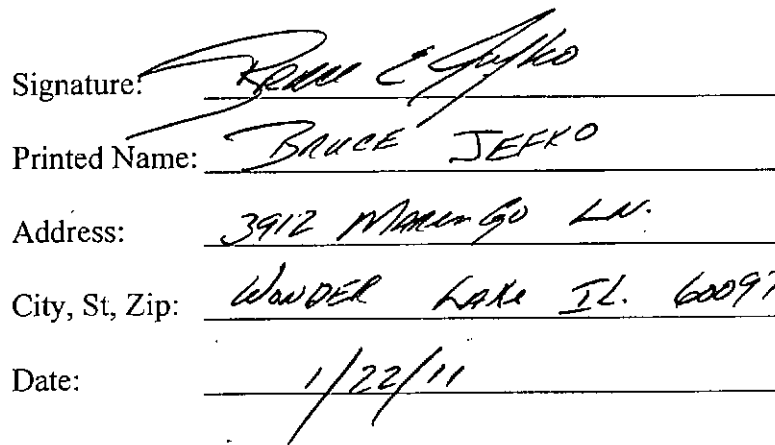 Signature: Bruce E Jefko
Printed Name: BRUCE JEFKO
Address: 3912 Marengo LN.
City, St, Zip: WONDER LAKE IL. 60097
Date: 1/22/11